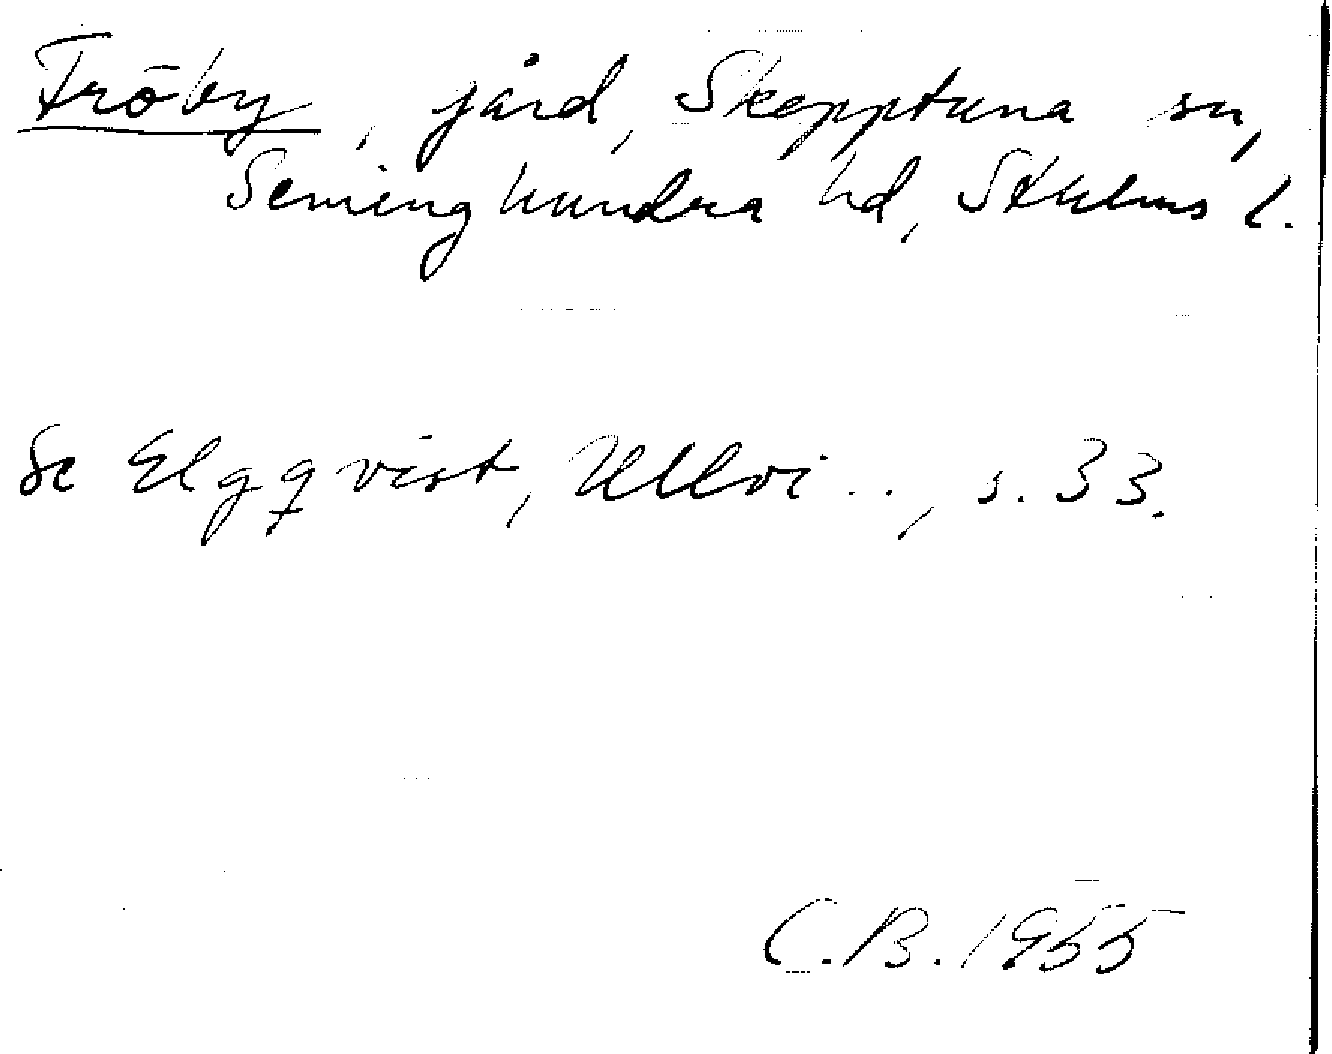 Fröby, jård, Skepptuna sn,
Seminghundra hd, Sthlms l.
Se Elgqvist, Ullvi.., s. 33.
C.B. 1955